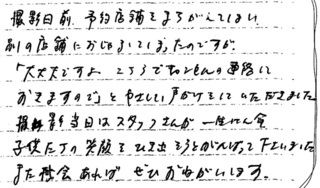 撮影日前、予約店舗をまちがえてしまい
別の店舗におじゃましてしまったのですが、
「大丈夫ですよ こちらで きちんと 連絡して
おきますので」と やさしい声かけをしていただきました
撮影当日はスタッフさんが一生けん命
子供たちの笑顔をひき出そうとがんばって下さいました。
また機会あれば ぜひおねがいします。